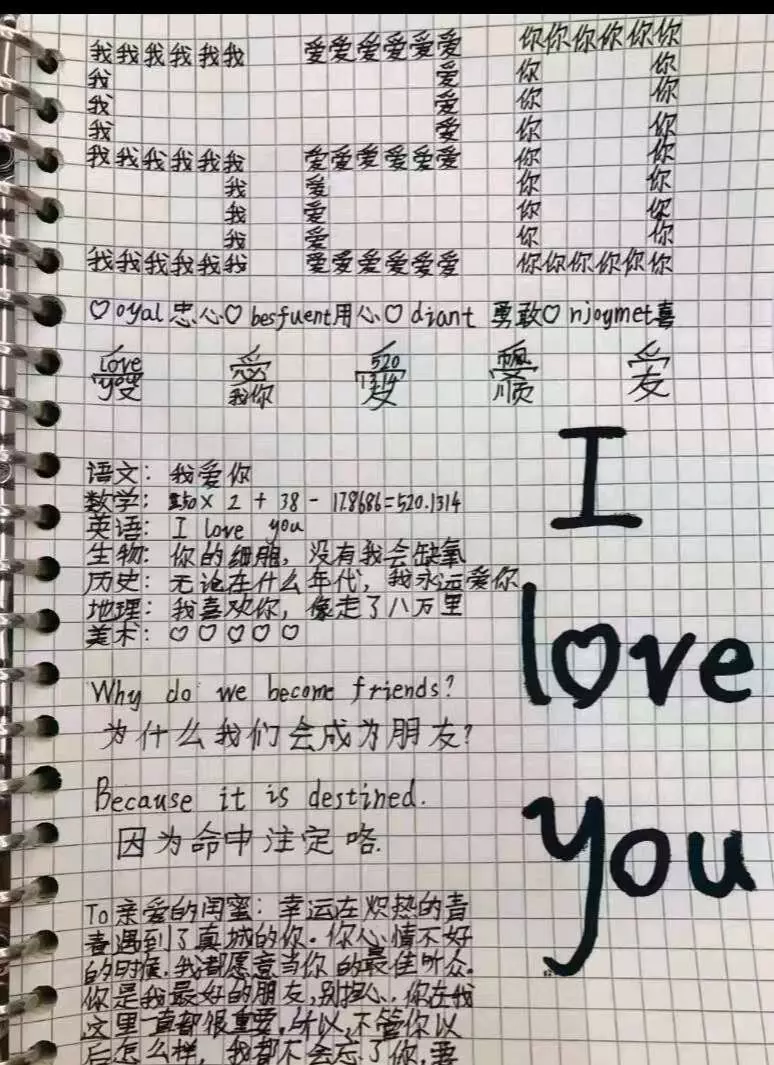 我我我我我我 爱爱爱爱爱爱 你你你你你你
我 爱 你 你
我 爱 你 你
我 爱 你 你
我我我我我我 爱爱爱爱爱爱 你 你
我 爱 你 你
我 爱 你 你
我 爱 你 你
我我我我我我 爱爱爱爱爱爱 你你你你你你
♡oyal 忠心♡ besfuent用心♡ diant 勇敢♡ njoymet喜
love you
我你
520 1314
顺
友
语文：我爱你
数学：250× 2 + 38 - 17.8686=520.1314
英语：I love you
生物：你的细胞，没有我会缺氧
历史：无论在什么年代，我永远爱你
地理：我喜欢你，像走了八万里
美术：♡♡♡♡♡
I
love
you
Why do we become friends?
为什么我们会成为朋友？
Because it is destined.
因为命中注定咯.
To亲爱的闺蜜：幸运在炽热的青
春遇到了真城的你.你心情不好
的时候.我都愿意当你的最佳听众.
你是我最好的朋友,别担心..你在我
这里一直都很重要,所以,不管你以
后怎么样，我都不会忘了你,要